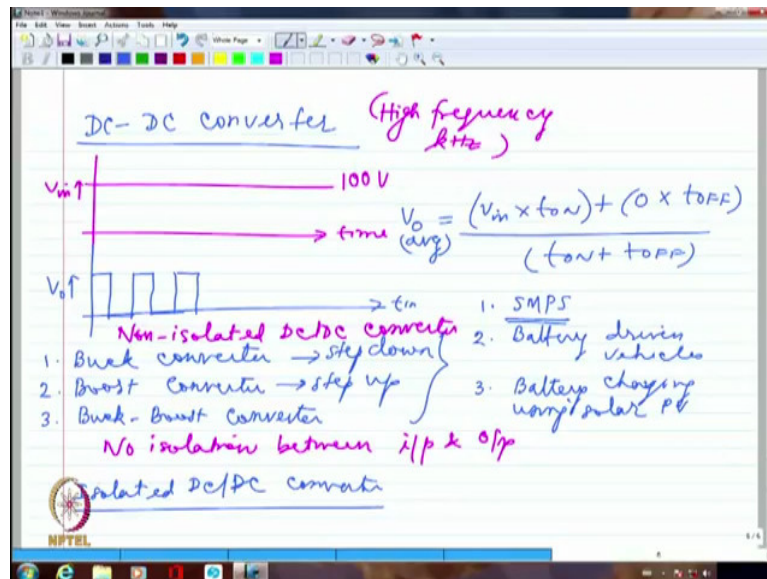 Note1 - Windows Journal
File Edit View Insert Actions Tools Help
Whole Page
B
DC-DC converter (High frequency
kHz)
Vin↑ 100 V
time
Vo (avg) = (Vin x tON) + (0 x tOFF)
(tON + tOFF)
Vo↑
Non-isolated DC/DC converter
1. Buck converter → step down
2. Boost converter → step up
3. Buck-Boost converter
1. SMPS
2. Battery driven
vehicles
3. Battery charging
using solar PV
No isolation between i/p & o/p
Isolated DC/DC
NPTEL
6